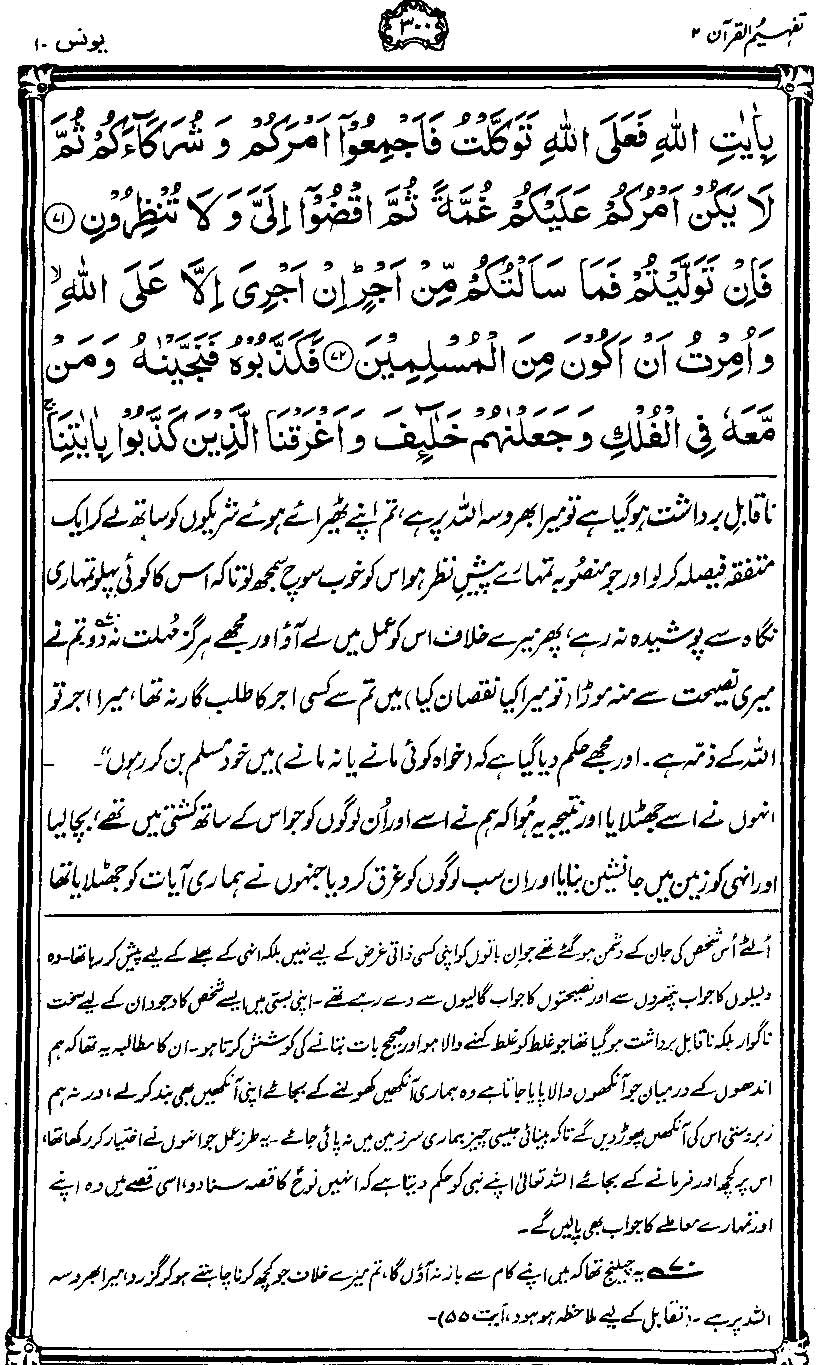 تفہیم القرآن ۲
۳۰۰
یونس ۱۰
بِاٰيٰتِ اللّٰهِ فَعَلَى اللّٰهِ تَوَكَّلْتُ فَاَجْمِعُوْۤا اَمْرَكُمْ وَ شُرَكَآءَكُمْ ثُمَّ
لَا يَكُنْ اَمْرُكُمْ عَلَيْكُمْ غُمَّةً ثُمَّ اقْضُوْۤا اِلَيَّ وَ لَا تُنْظِرُوْنِ ۷۱
فَاِنْ تَوَلَّيْتُمْ فَمَا سَاَلْتُكُمْ مِّنْ اَجْرٍ ؕ اِنْ اَجْرِيَ اِلَّا عَلَى اللّٰهِ ۙ
وَ اُمِرْتُ اَنْ اَكُوْنَ مِنَ الْمُسْلِمِيْنَ ۷۲ فَكَذَّبُوْهُ فَنَجَّيْنٰهُ وَ مَنْ
مَّعَهٗ فِي الْفُلْكِ وَ جَعَلْنٰهُمْ خَلٰٓىِٕفَ وَ اَغْرَقْنَا الَّذِيْنَ كَذَّبُوْا بِاٰيٰتِنَا ۚ
ناقابلِ برداشت ہو گیا ہے تو میرا بھروسہ اللہ پر ہے، تم اپنے ٹھیرائے ہوئے شریکوں کو ساتھ لے کر ایک
متفقہ فیصلہ کر لو اور جو منصُوبہ تمہارے پیشِ نظر ہو اس کو خوب سوچ سمجھ لو تاکہ اس کا کوئی پہلو تمہاری
نگاہ سے پوشیدہ نہ رہے، پھر میرے خلاف اس کو عمل میں لے آؤ اور مجھے ہرگز مُہلت نہ دو۷۰ تم نے
میری نصیحت سے منہ موڑا (تو میرا کیا نقصان کیا) میں تم سے کسی اجر کا طلب گار نہ تھا، میرا اجر تو
اللہ کے ذمّہ ہے۔ اور مجھے حکم دیا گیا ہے کہ (خواہ کوئی مانے یا نہ مانے) میں خود مسلم بن کر رہوں“۔
انہوں نے اسے جھٹلایا اور نتیجہ یہ ہُوا کہ ہم نے اسے اور اُن لوگوں کو جو اس کے ساتھ کشتی میں تھے، بچا لیا
اور انہی کو زمین میں جانشین بنایا اور ان سب لوگوں کو غرق کر دیا جنہوں نے ہماری آیات کو جھٹلایا تھا
اُلٹے اُس شخص کی جان کے دشمن ہو گئے تھے جو ان باتوں کو اپنی کسی ذاتی غرض کے لیے نہیں بلکہ انہی کے بھلے کے لیے پیش کر رہا تھا۔ وہ
دلیلوں کا جواب پتھروں سے اور نصیحتوں کا جواب گالیوں سے دے رہے تھے۔ اپنی بستی میں ایسے شخص کا وجود ان کے لیے سخت
ناگوار بلکہ ناقابل برداشت ہو گیا تھا جو غلط کو غلط کہنے والا ہو اور صحیح بات بتانے کی کوشش کرتا ہو۔ ان کا مطالبہ یہ تھا کہ ہم
اندھوں کے درمیان جو آنکھوں والا پایا جاتا ہے وہ ہماری آنکھیں کھولنے کے بجائے اپنی آنکھیں بھی بند کر لے، ورنہ ہم
زبردستی اس کی آنکھیں پھوڑ دیں گے تاکہ بینائی جیسی چیز ہماری سرزمین میں نہ پائی جائے۔ یہ طرزِ عمل جو انہوں نے اختیار کر رکھا تھا،
اس پر کچھ اور فرمانے کے بجائے اللہ تعالیٰ اپنے نبی کو حکم دیتا ہے کہ انہیں نوحؑ کا قصہ سنا دو، اسی قصے میں وہ اپنے
اور تمہارے معاملے کا جواب بھی پالیں گے۔
۷۰ یہ چیلنج تھا کہ میں اپنے کام سے باز نہ آؤں گا، تم میرے خلاف جو کچھ کرنا چاہتے ہو کر گزرو، میرا بھروسہ
اللہ پر ہے۔ (تقابل کے لیے ملاحظہ ہو ہود، آیت ۵۵)۔